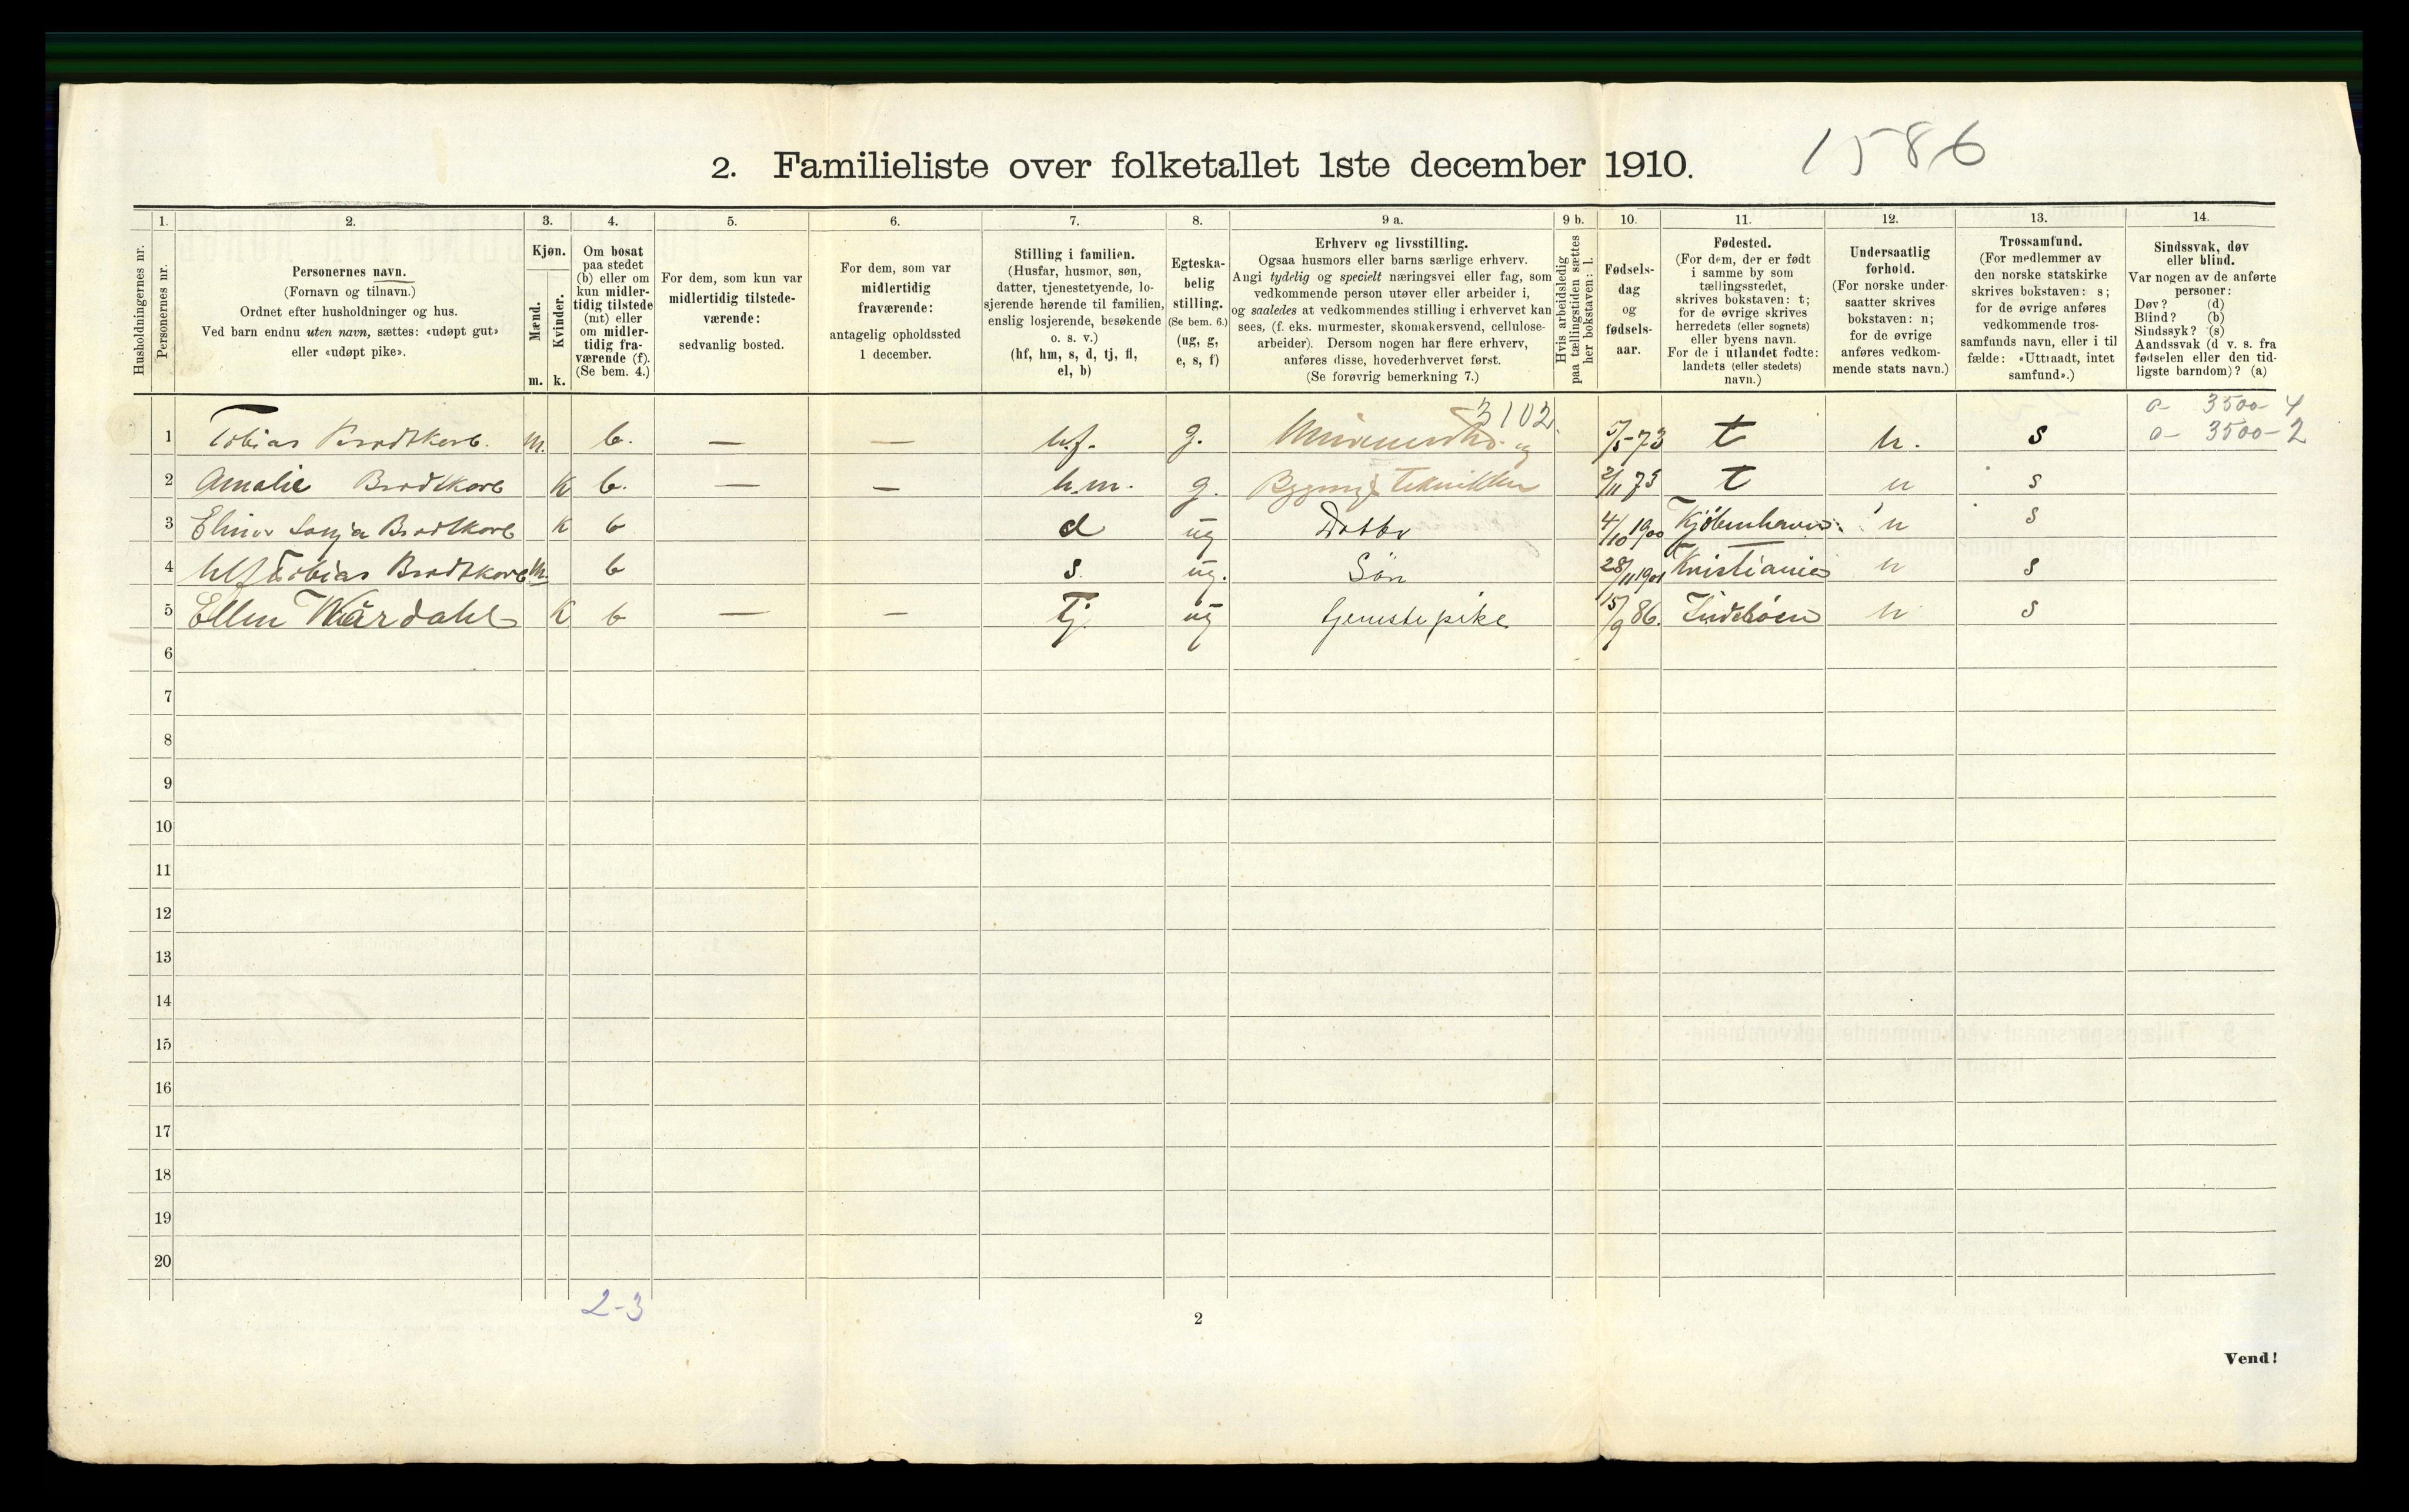 1586
2. Familieliste over folketallet 1ste december 1910.
Husholdningernes nr.
1.
Personernes nr.
2.
Personernes navn.
(Fornavn og tilnavn.)
Ordnet efter husholdninger og hus.
Ved barn endnu uten navn, sættes: «udøpt gut»
eller «udøpt pike».
3.
Kjøn.
Mænd.
Kvinder.
m. k.
4.
Om bosat
paa stedet
(b) eller om
kun midler-
tidig tilstede
(mt) eller
om midler-
tidig fra-
værende (f).
(Se bem. 4.)
5.
For dem, som kun var
midlertidig tilstede-
værende:
sedvanlig bosted.
6.
For dem, som var
midlertidig
fraværende:
antagelig opholdssted
1 december.
7.
Stilling i familien.
(Husfar, husmor, søn,
datter, tjenestetyende, lo-
sjerende hørende til familien,
enslig losjerende, besøkende
o. s. v.)
(hf, hm, s, d, tj, fl,
el, b)
8.
Egteska-
belig
stilling.
(Se bem. 6.)
(ug, g,
e, s, f)
9 a.
Erhverv og livsstilling.
Ogsaa husmors eller barns særlige erhverv.
Angi tydelig og specielt næringsvei eller fag, som
vedkommende person utøver eller arbeider i,
og saaledes at vedkommendes stilling i erhvervet kan
sees, (f. eks. murmester, skomakersvend, cellulose-
arbeider). Dersom nogen har flere erhverv,
anføres disse, hovederhvervet først.
(Se forøvrig bemerkning 7.)
9 b.
Hvis arbeidsledig
paa tællingstiden sættes
her bokstaven: l.
10.
Fødsels-
dag
og
fødsels-
aar.
11.
Fødested.
(For dem, der er født
i samme by som
tællingsstedet,
skrives bokstaven: t;
for de øvrige skrives
herredets (eller sognets)
eller byens navn.
For de i utlandet fødte:
landets (eller stedets)
navn.)
12.
Undersaatlig
forhold.
(For norske under-
saatter skrives
bokstaven: n;
for de øvrige
anføres vedkom-
mende stats navn.)
13.
Trossamfund.
(For medlemmer av
den norske statskirke
skrives bokstaven: s;
for de øvrige anføres
vedkommende tros-
samfunds navn, eller i til
fælde: «Uttraadt, intet
samfund».)
14.
Sindssvak, døv
eller blind.
Var nogen av de anførte
personer:
Døv? (d)
Blind? (b)
Sindssyk? (s)
Aandssvak (d. v. s. fra
fødselen eller den tid-
ligste barndom)? (a)
3102 a- 3500-4
1 Tobias Brodtkorb. m. b. — — h.f. g. og 5/5-73 t n. s a- 3500-2
2 Amalie Brodtkorb K b. — — h.m. g. Bygnings tekniker 2/11 73 t n s
3 Sonja Brodtkorb K b d ug Datter 4/10 1900 Kjøbenhavn n s
4 Ulf Tobias Brodtkorb m. b s. ug. Søn 28/11 1901 Kristiania n s
5 Ellen Wårdahl K b — — Tj. ug tjenestepike 15/9 86. n s
6
7
8
9
10
11
12
13
14
15
16
17
18
19
20
2-3
2
Vend!